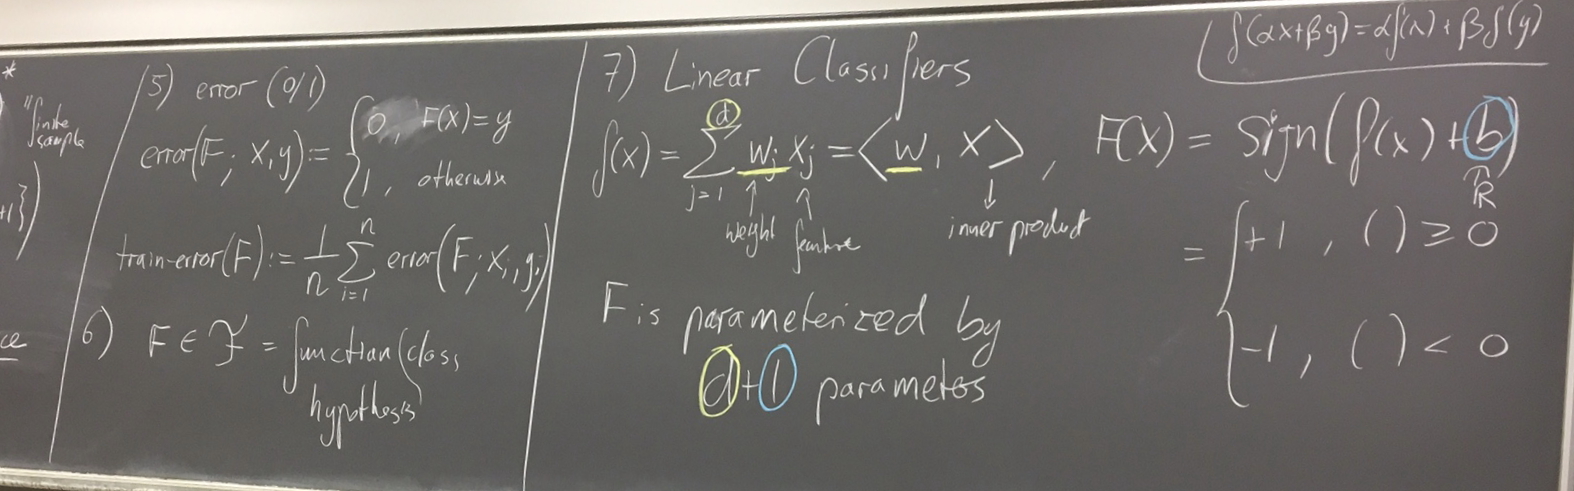 *
"finite
sample
+1})
ce
5) error (0/1)
error(F; x,y) := { 0, F(x)=y
1, otherwise
train-error(F) := 1/n ∑_{i=1}^{n} error(F; x_i, y_i)
6) F ∈ ℱ = function (class,
hypothesis
7) Linear Classifiers
f(x) = ∑_{j=1}^{d} w_j x_j = <w, x>,
weight feature
inner product
F is parameterized by
d+1 parametes
f(αx+βy)=αf(x)+βf(y)
F(x) = sign(f(x)+b)
ℝ
= { +1, ( ) ≥ 0
-1, ( ) < 0